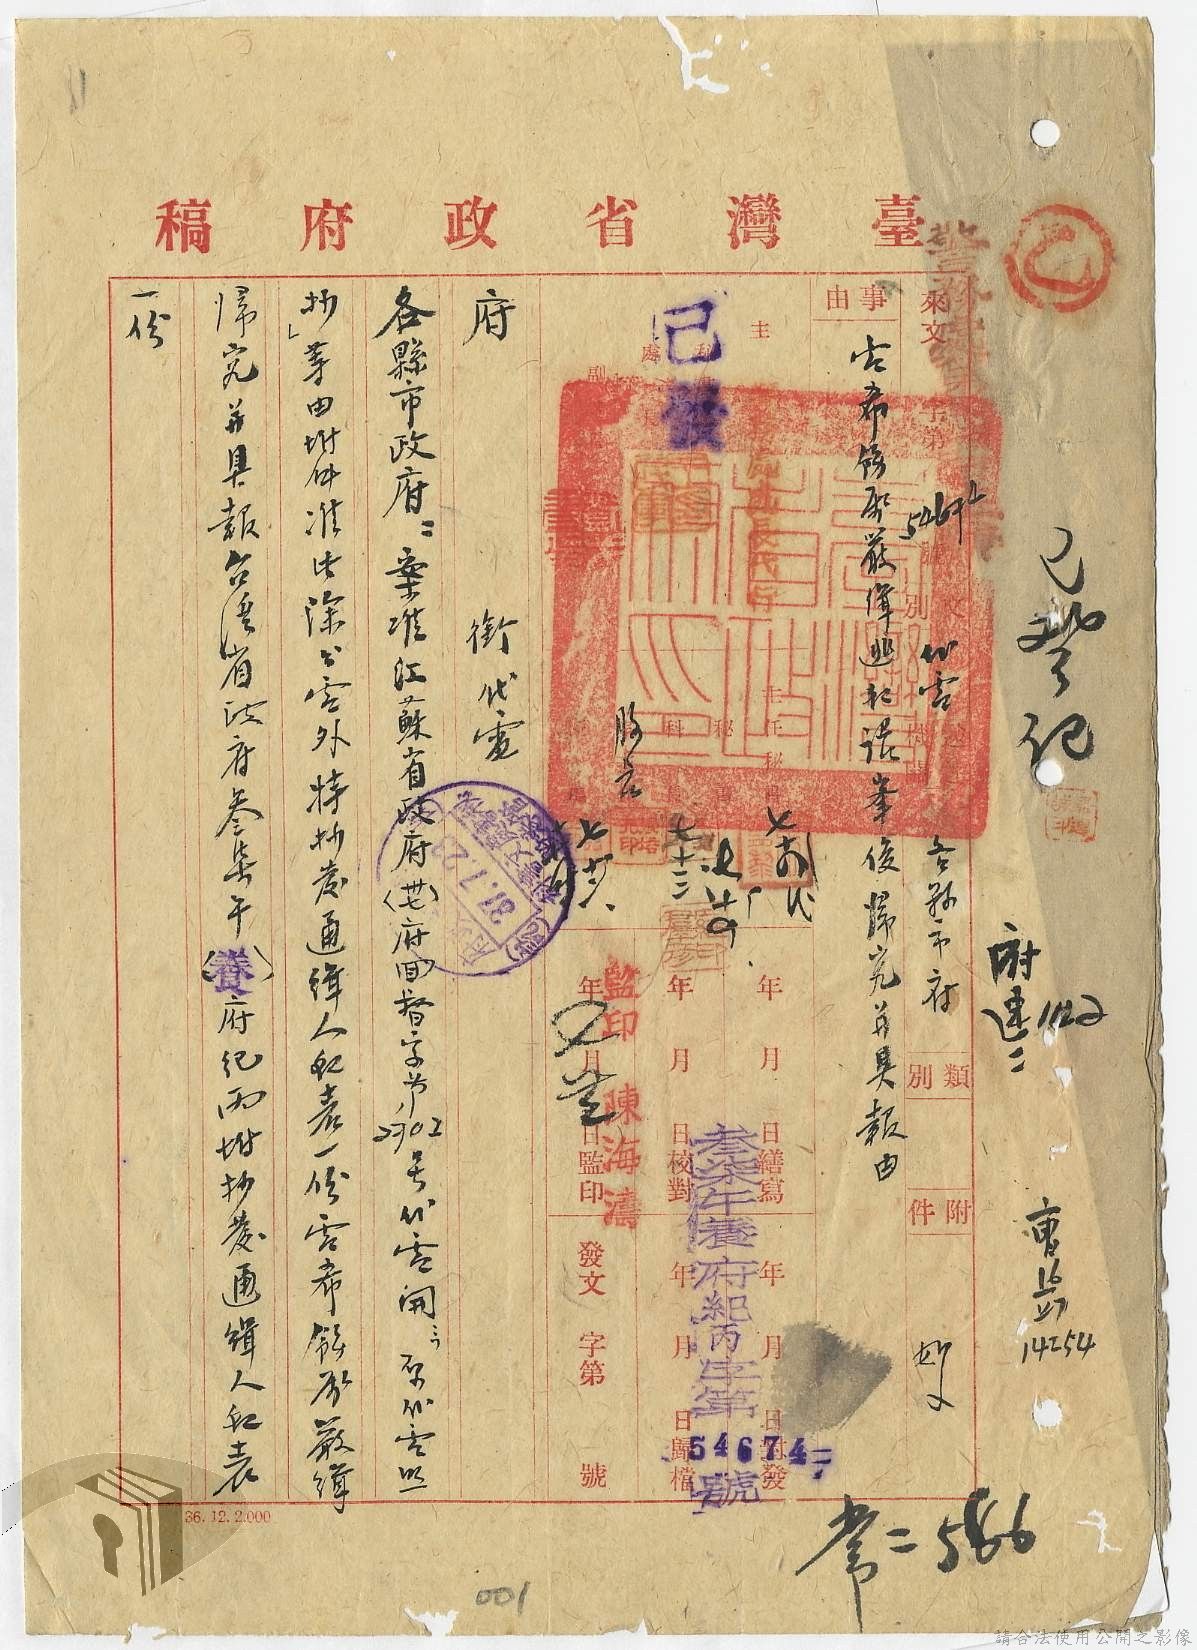 臺灣省政府稿
乙
已登記
府建二 1122
14254
來文 字第 號
54674
文別 代電
各縣市府
類別
附件
抄文
事由
希飭屬嚴緝逃犯 峯俊歸究並具報由
主任秘書
秘書
科長
股長
已發
年 月 日繕寫
年 月 日校對
年 月 日監印
年 月 日封發
年 月 日歸檔
發文 字第 號
監印 陳海濤
叁柒午養府紀丙字第 54674 號
37.7.23
府 銜代電
各縣市政府：案准江蘇省政府（卅七）府四督字第2302號代電開：「原代電照
抄」等由附件准此除分電外特抄發通緝人犯表一份電希飭屬嚴緝
歸究並具報台灣省政府叁柒午（養）府紀丙附抄發通緝人犯表
一份
36.12.2.000
常二586
001
請合法使用公開之影像